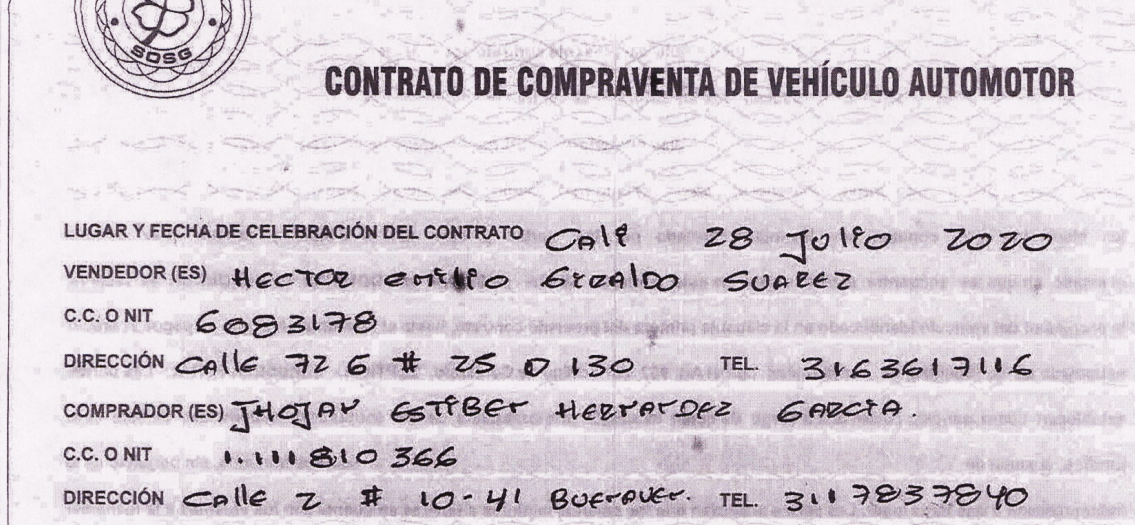 SDSG
CONTRATO DE COMPRAVENTA DE VEHÍCULO AUTOMOTOR
LUGAR Y FECHA DE CELEBRACIÓN DEL CONTRATO Cali 28 Julio 2020
VENDEDOR (ES) Hector emilio Giraldo Suarez
C.C. O NIT 6083178
DIRECCIÓN Calle 72 G # 25 D 130 TEL. 3163617116
COMPRADOR (ES) JHOJAN ESTIBEN HERNANDEZ GARCIA.
C.C. O NIT 1.111810 366
DIRECCIÓN Calle 2 # 10-41 Buenaven. TEL. 3117837840